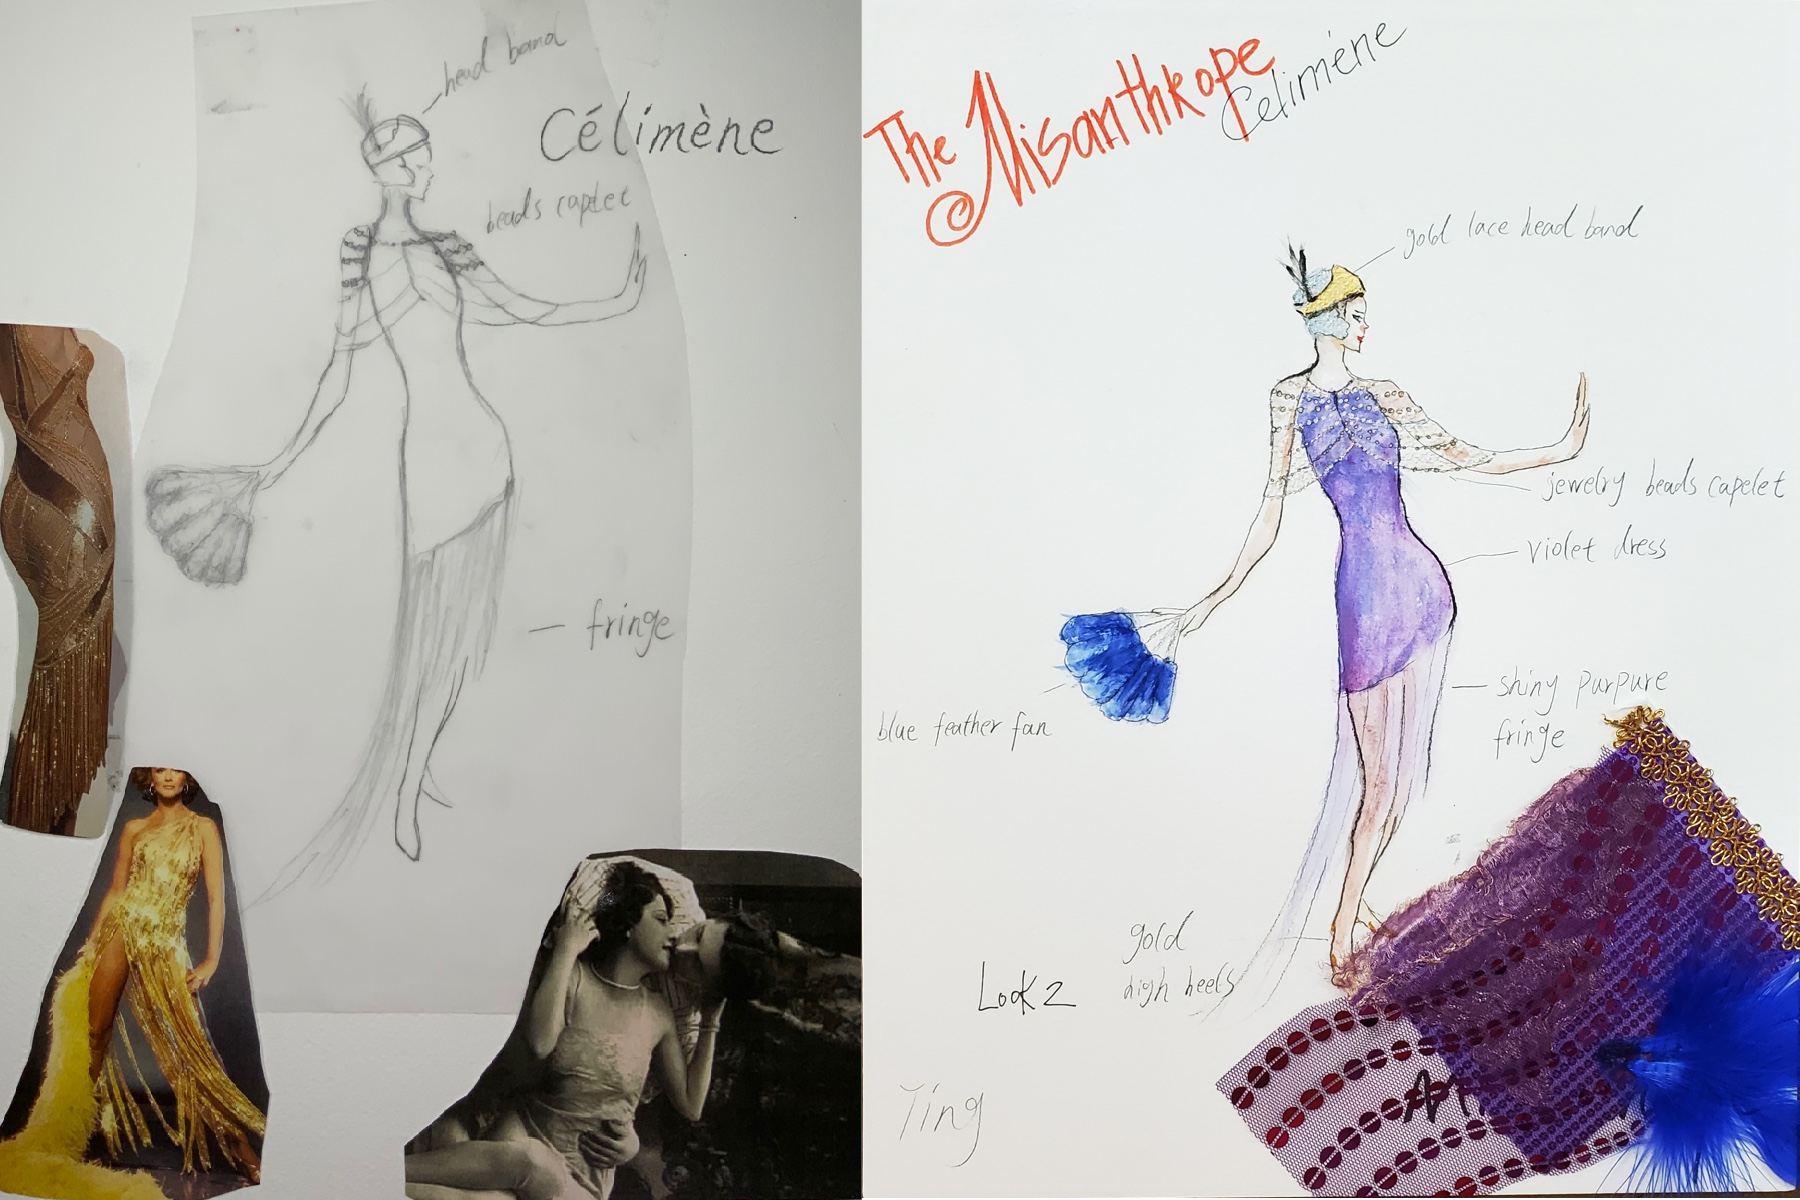 head band
Célimène
beads caplet
fringe
The Misanthkope
Célimène
gold lace head band
jewelry beads capelet
violet dress
shiny purpure
fringe
blue feather fan
gold
high heels
Look 2
Ting